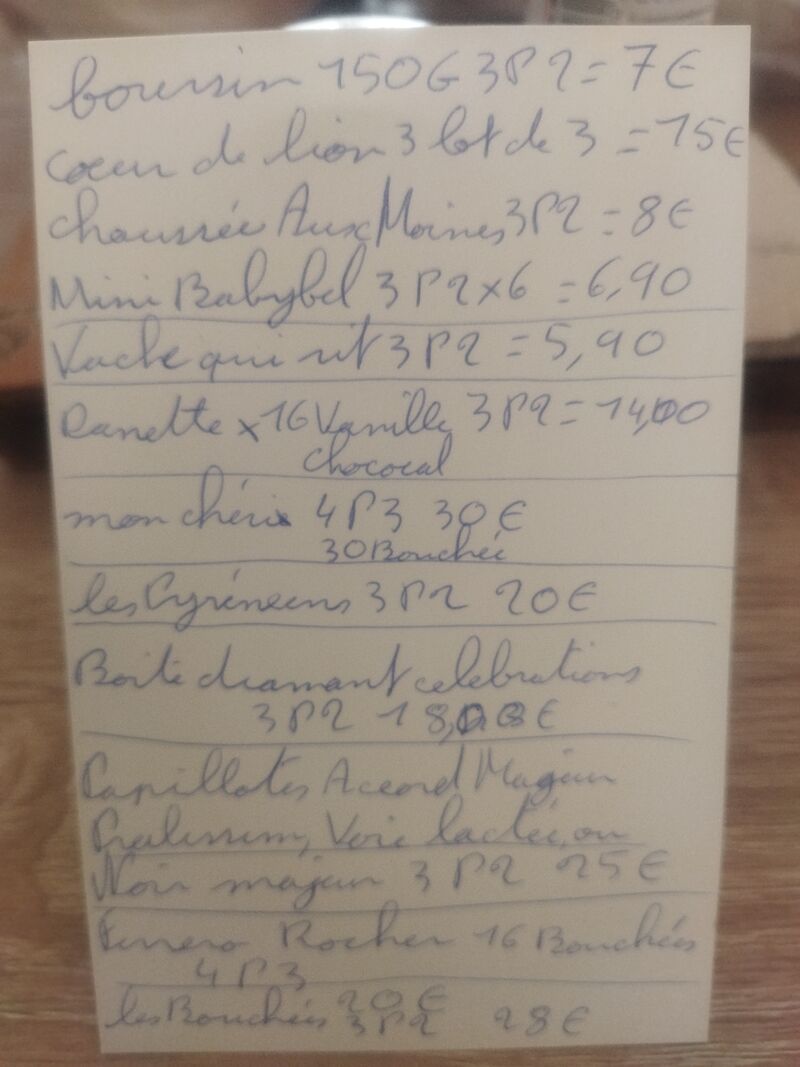 boursin 150G 3P2 = 7€
coeur de lion 3 lot de 3 = 15€
chaussée Aux Moines 3P2 = 8€
Mini Babybel 3P2x6 = 6,90
Vache qui rit 3P2 = 5,90
Danette x16 Vanille 3P2 = 14,00
chococal
mon chéri 4P3 30€
30 Bouchée
les Pyrénéens 3P2 20€
Boite diamant celebrations
3P2 18,00€
Papillotes Accord Majeur
Pralissim, Voie lactée, ou
Noir majeur 3P2 25€
Ferrero Rocher 16 Bouchées
4P3
20€
les Bouchées 3P2 28€